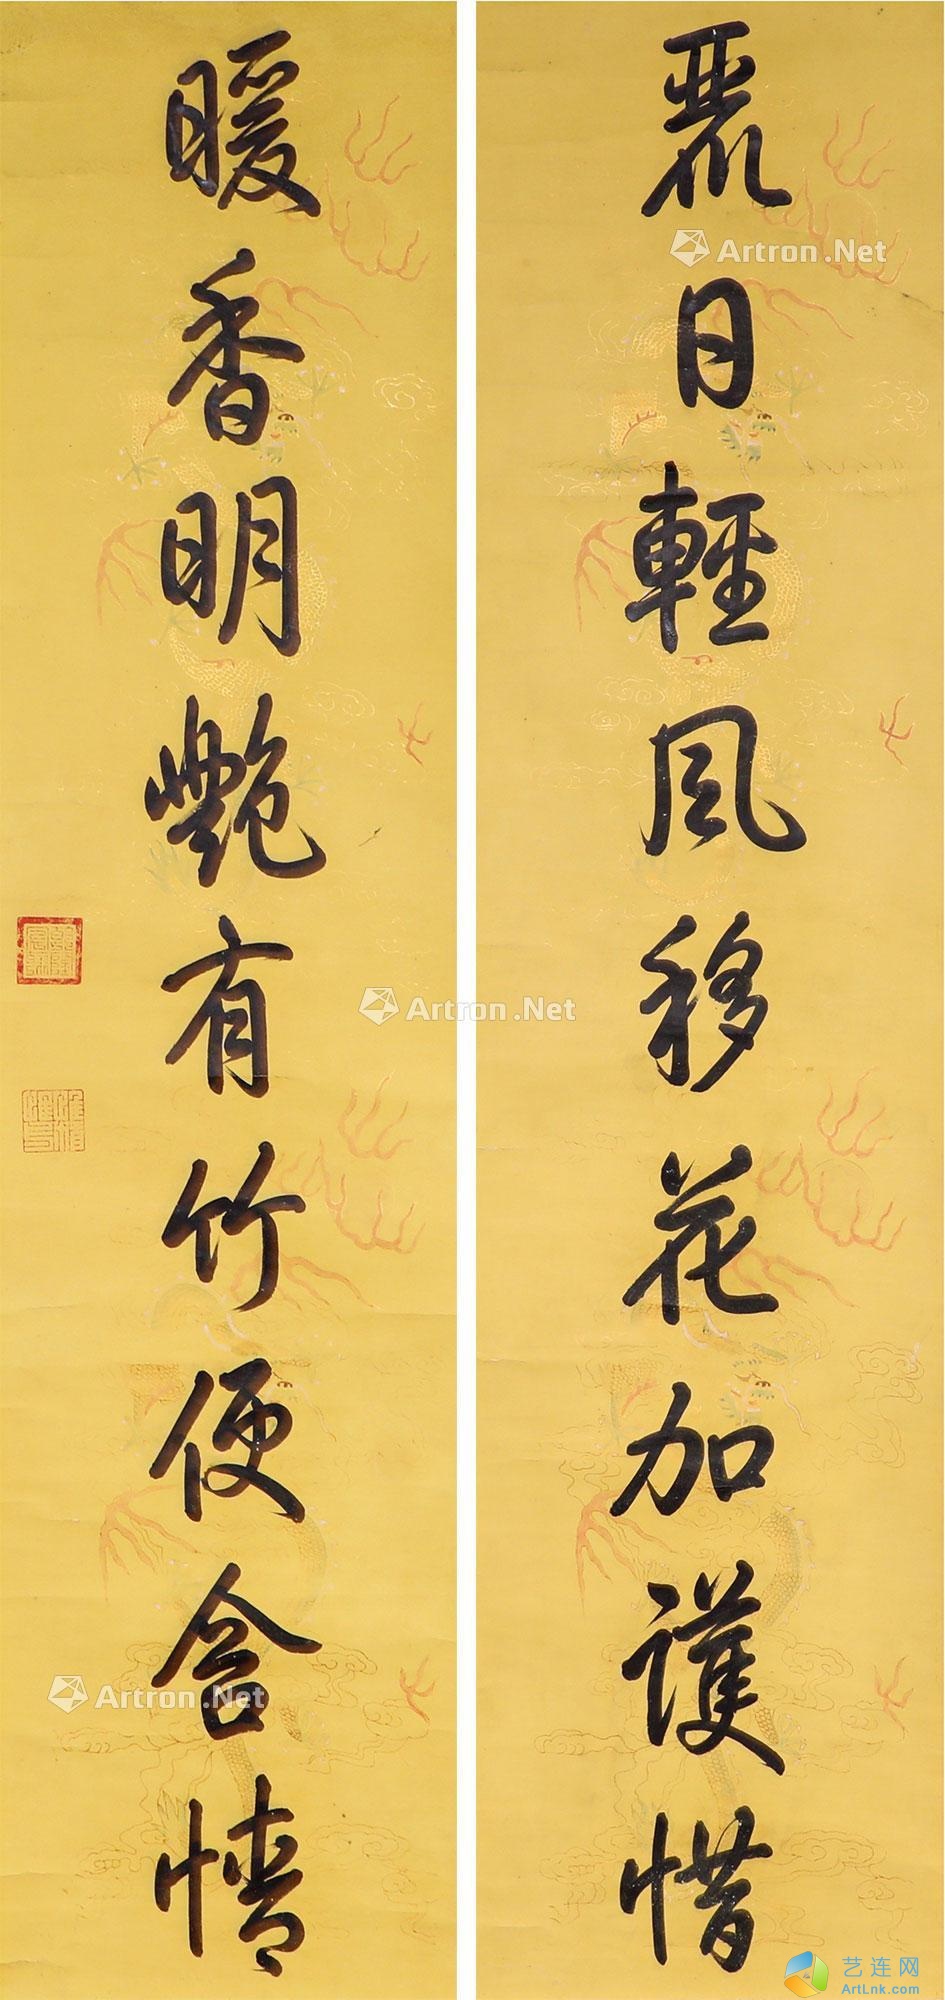 麗日輕風移花加護惜
暖香明艷有竹便含情
Artron.Net
Artron.Net
Artron.Net
艺连网
ArtLnk.com